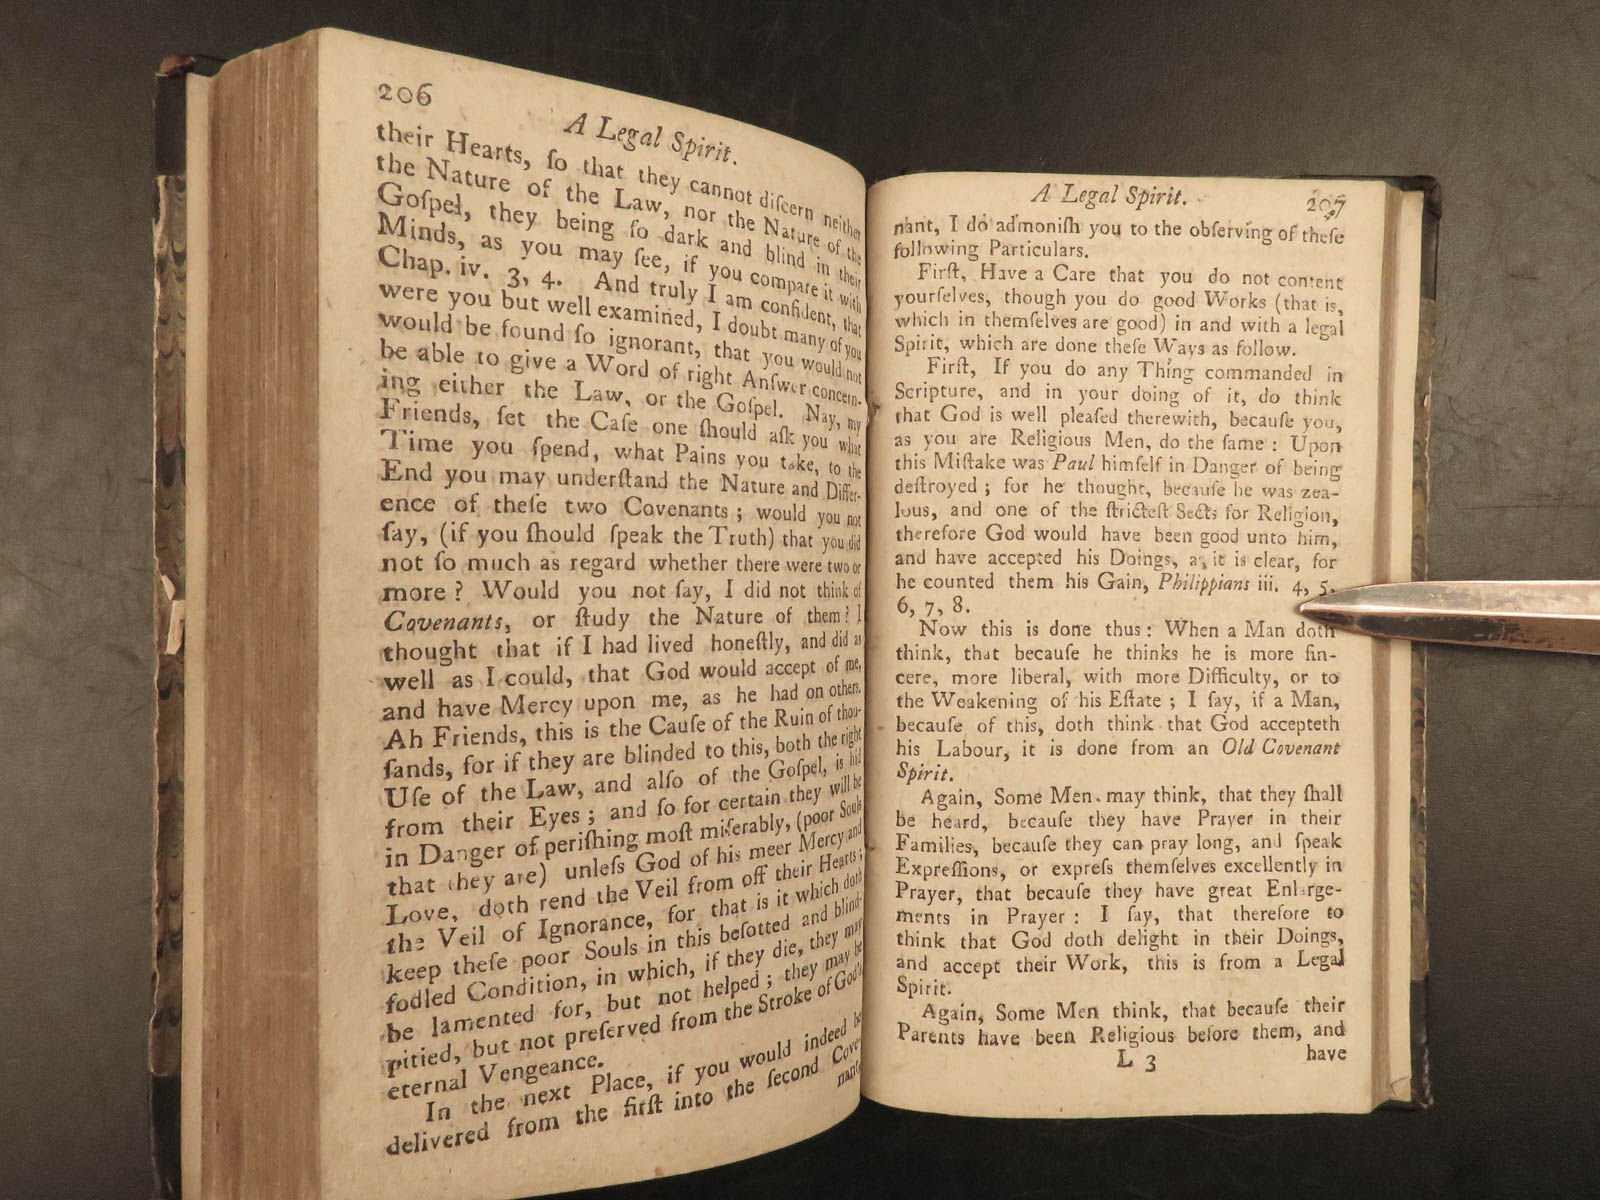 206
A Legal Spirit.
their Hearts, ſo that they cannot diſcern neither
the Nature of the Law, nor the Nature of the
Goſpel, they being ſo dark and blind in their
Minds, as you may ſee, if you compare it with
Chap. iv. 3, 4. And truly I am confident, that
were you but well examined, I doubt many of you
would be found ſo ignorant, that you would not
be able to give a Word of right Anſwer concern-
ing either the Law, or the Goſpel. Nay, my
Friends, ſet the Caſe one ſhould aſk you what
Time you ſpend, what Pains you take, to the
End you may underſtand the Nature and Differ-
ence of theſe two Covenants; would you not
ſay, (if you ſhould ſpeak the Truth) that you did
not ſo much as regard whether there were two or
more? Would you not ſay, I did not think of
Covenants, or ſtudy the Nature of them? I
thought that if I had lived honeſtly, and did as
well as I could, that God would accept of me,
and have Mercy upon me, as he had on others.
Ah Friends, this is the Cauſe of the Ruin of thou-
ſands, for if they are blinded to this, both the right
Uſe of the Law, and alſo of the Goſpel, is hid
from their Eyes; and ſo for certain they will be
in Danger of periſhing moſt miſerably, (poor Souls
that they are) unleſs God of his meer Mercy and
Love, doth rend the Veil from off their Hearts;
the Veil of Ignorance, for that is it which doth
keep theſe poor Souls in this beſotted and blind-
fodled Condition, in which, if they die, they may
be lamented for, but not helped; they may be
pitied, but not preſerved from the Stroke of God's
eternal Vengeance.
In the next Place, if you would indeed be
delivered from the firſt into the ſecond Cove-
nant,
A Legal Spirit.
207
nant, I do admoniſh you to the obſerving of theſe
following Particulars.
Firſt, Have a Care that you do not content
yourſelves, though you do good Works (that is,
which in themſelves are good) in and with a legal
Spirit, which are done theſe Ways as follow.
Firſt, If you do any Thing commanded in
Scripture, and in your doing of it, do think
that God is well pleaſed therewith, becauſe you,
as you are Religious Men, do the ſame: Upon
this Miſtake was Paul himſelf in Danger of being
deſtroyed; for he thought, becauſe he was zea-
lous, and one of the ſtricteſt Sects for Religion,
therefore God would have been good unto him,
and have accepted his Doings, as it is clear, for
he counted them his Gain, Philippians iii. 4, 5,
6, 7, 8.
Now this is done thus: When a Man doth
think, that becauſe he thinks he is more ſin-
cere, more liberal, with more Difficulty, or to
the Weakening of his Eſtate; I ſay, if a Man,
becauſe of this, doth think that God accepteth
his Labour, it is done from an Old Covenant
Spirit.
Again, Some Men may think, that they ſhall
be heard, becauſe they have Prayer in their
Families, becauſe they can pray long, and ſpeak
Expreſſions, or expreſs themſelves excellently in
Prayer, that becauſe they have great Enlarge-
ments in Prayer: I ſay, that therefore to
think that God doth delight in their Doings,
and accept their Work, this is from a Legal
Spirit.
Again, Some Men think, that becauſe their
Parents have been Religious before them, and
L 3
have